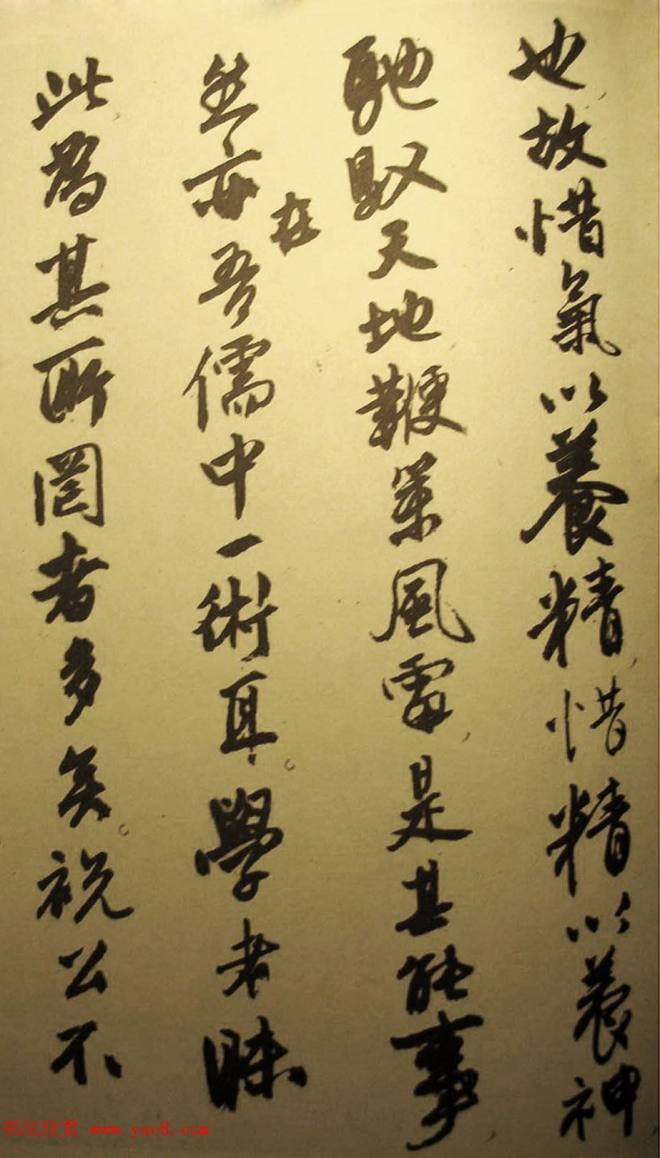 也故惜氣以養精惜精以養神
馳馭天地鞭策風雷是其能事
然亦在吾儒中一術耳學者昧
此為其所罔者多矣祝公不
书法欣赏 www.yac8.com